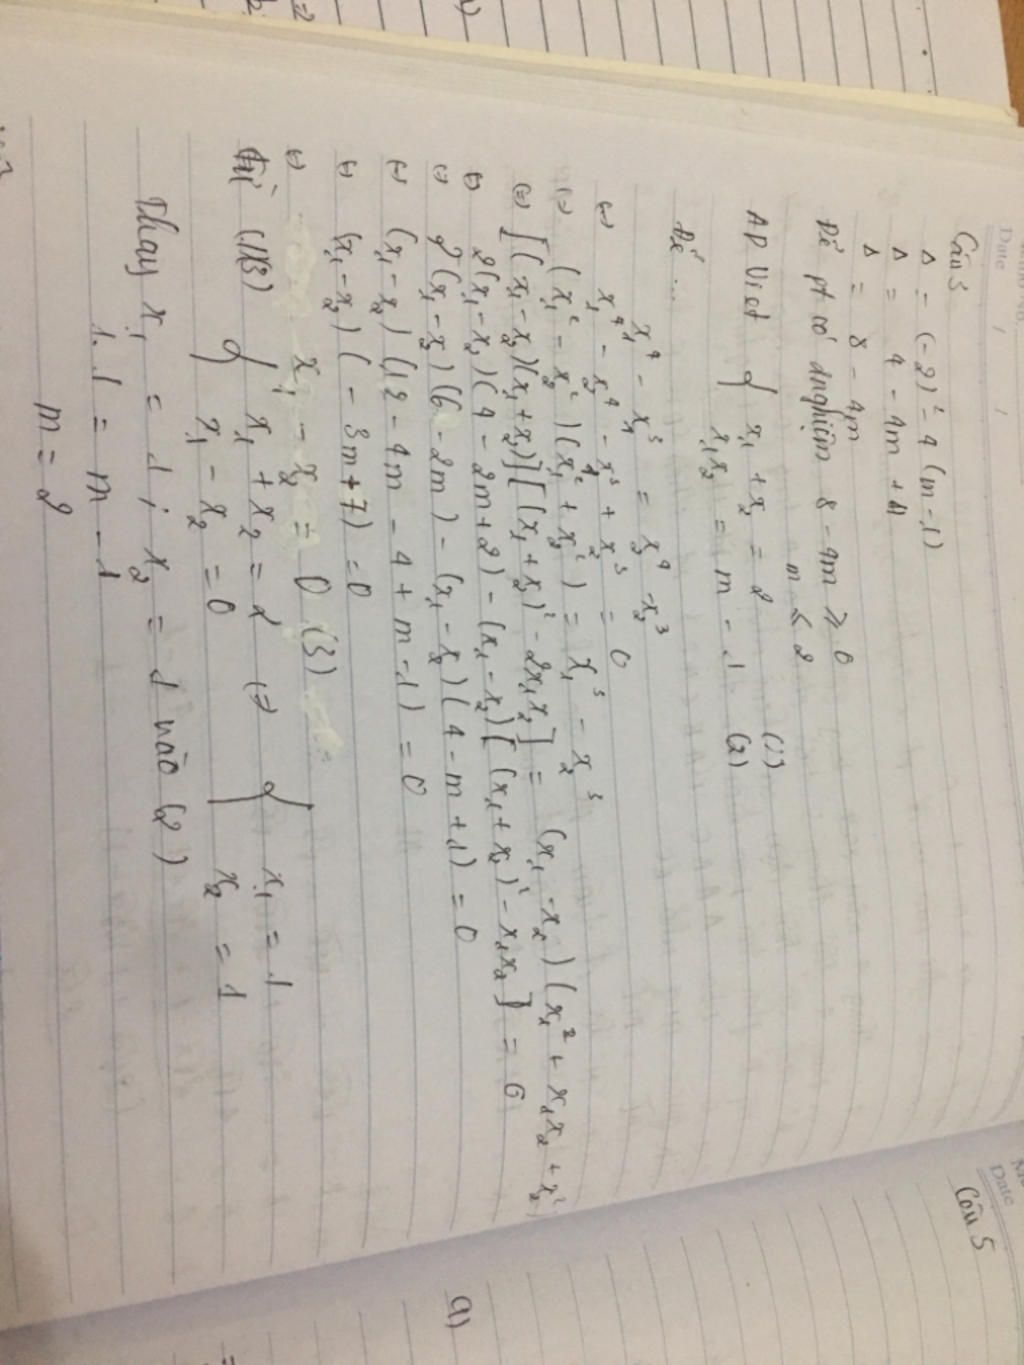 Date / /
Câu 3
Δ = (-2)² - 4(m-1)
Δ = 4 - 4m + 4
Δ = 8 - 4m
Để pt có 2 nghiệm 8 - 4m ≥ 0
m ≤ 2
AD Viet { x₁ + x₂ = 2 (1)
x₁x₂ = m - 1 (2)
Để ...
x₁⁴ - x₁³ = x₂⁴ - x₂³
(=) x₁⁴ - x₂⁴ - x₁³ + x₂³ = 0
(=) (x₁² - x₂²)(x₁² + x₂²) = x₁³ - x₂³
(=) [(x₁ - x₂)(x₁ + x₂)][(x₁ + x₂)² - 2x₁x₂] = (x₁ - x₂)(x₁² + x₁x₂ + x₂²
(=) 2(x₁ - x₂)(4 - 2m + 2) - (x₁ - x₂)[(x₁ + x₂)² - x₁x₂] = 0
(=) 2(x₁ - x₂)(6 - 2m) - (x₁ - x₂)(4 - m + 1) = 0
(=) (x₁ - x₂)(12 - 4m - 4 + m - 1) = 0
(=) (x₁ - x₂)(-3m + 7) = 0
(=) x₁ - x₂ = 0 (3)
Từ (1)(3) { x₁ + x₂ = 2 (=) { x₁ = 1
x₁ - x₂ = 0 x₂ = 1
Thay x₁ = 1; x₂ = 1 vào (2)
1.1 = m - 1
m = 2
Date
Câu 5
a)